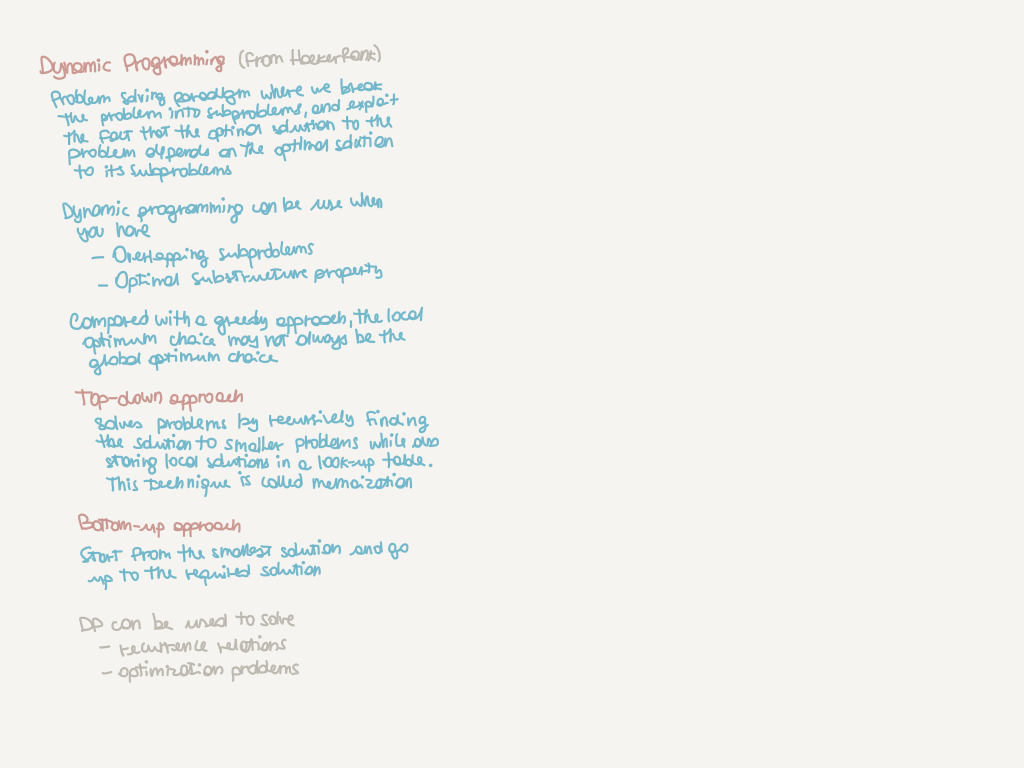 Dynamic Programming (from HackerRank)
Problem solving paradigm where we break
the problem into subproblems, and exploit
the fact that the optimal solution to the
problem depends on the optimal solution
to its subproblems
Dynamic programming can be use when
you have
- Overlapping subproblems
- Optimal substructure property
Compared with a greedy approach, the local
optimum choice may not always be the
global optimum choice
Top-down approach
Solves problems by recursively finding
the solution to smaller problems while also
storing local solutions in a look-up table.
This technique is called memoization
Bottom-up approach
Start from the smallest solution and go
up to the required solution
DP can be used to solve
- recurrence relations
- optimization problems